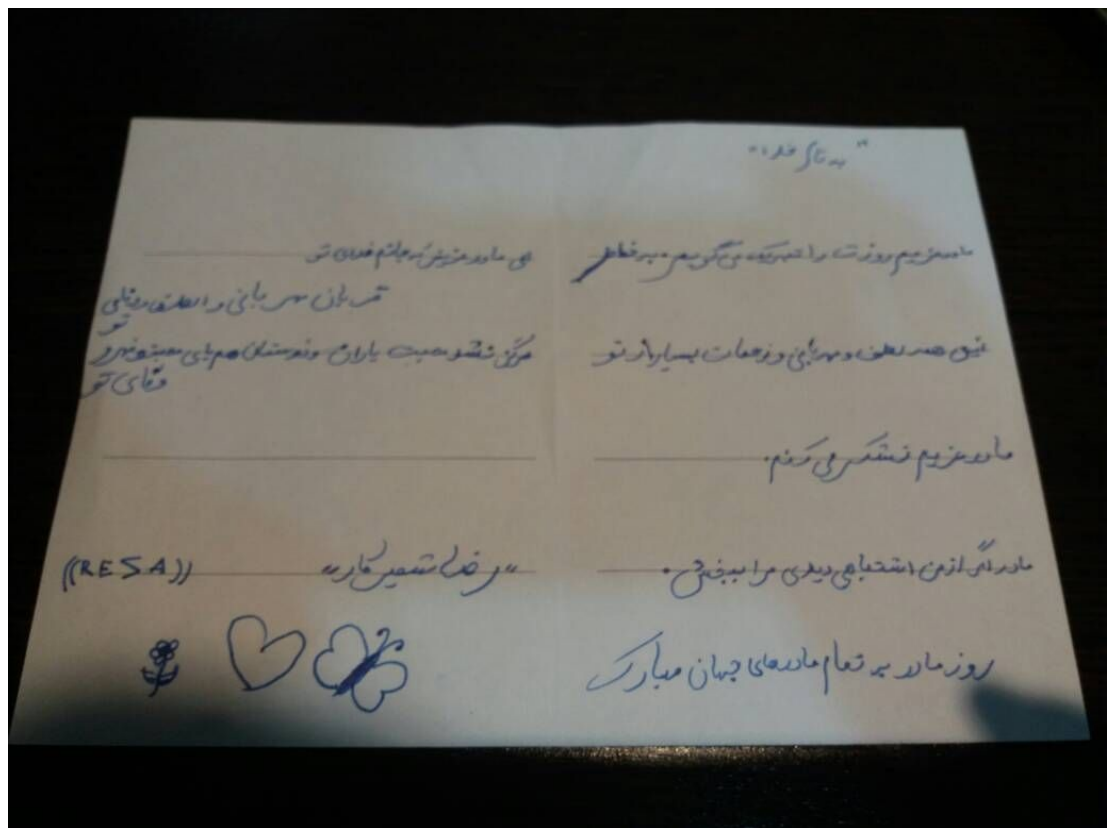 "به نام خدا"
مادر عزیزم روزت را تبریک می گویم. به خاطر
این همه لطف و مهربانی و زحمات بسیار از تو
مادر عزیزم تشکر می کنم.
مادر اگر از من اشتباهی دیدی مرا ببخش.
روز مادر بر تمام مادرهای جهان مبارک
ای مادر عزیز که جانم فدای تو
قربان مهربانی و لطف و صفای
تو
هرگز نشد محبت یاران و دوستان هم پای محبت و مهر و
وفای تو
"رضا" ((RESA))